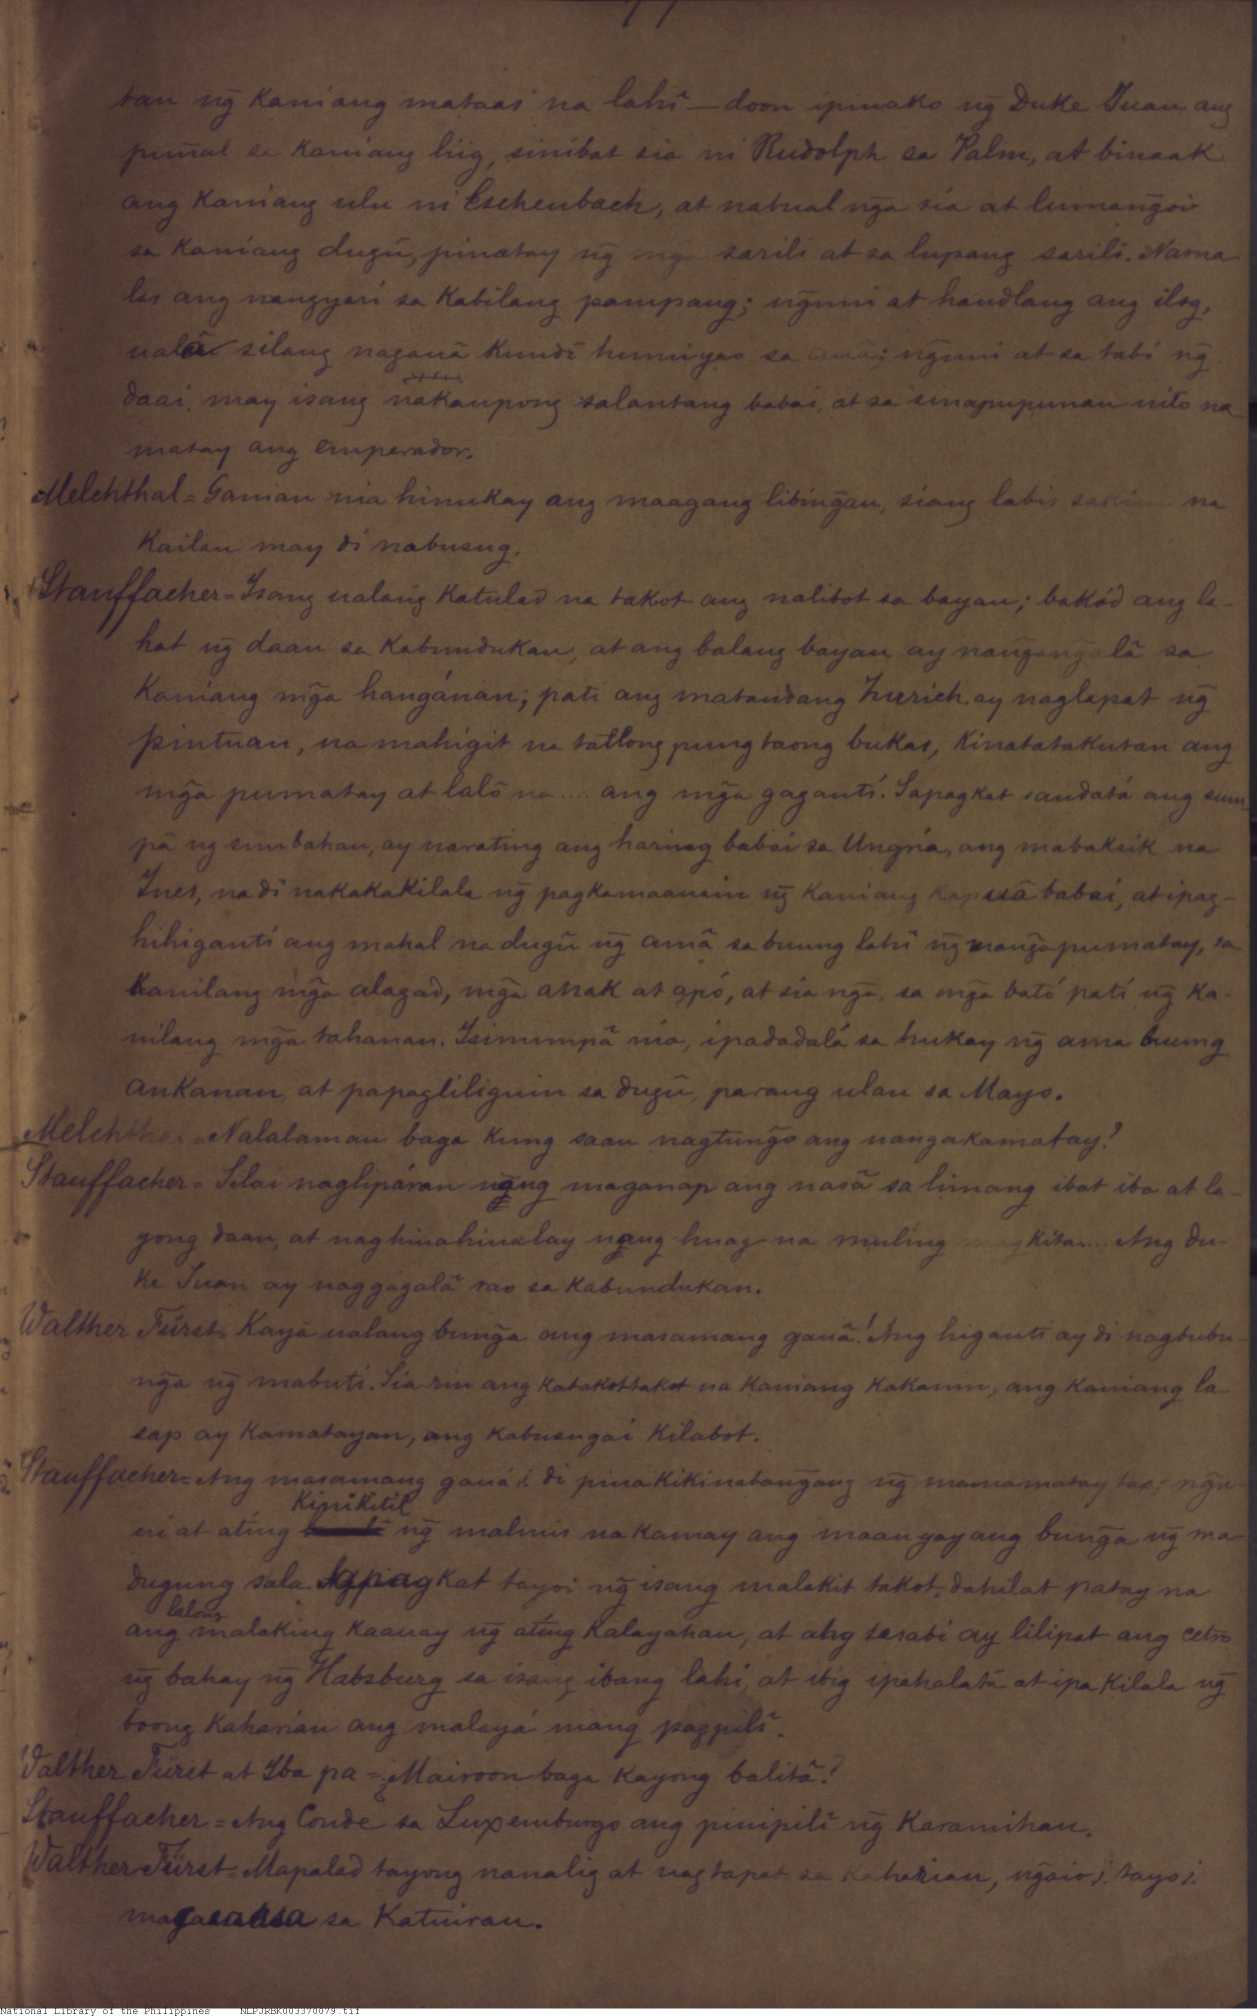 77
tan ng̃ Kaniang mataas na lahî — doon ipinako ng̃ Duke Juan ang
puñal sa Kaniang liig, sinibat sia ni Rudolph sa Palm, at binaak
ang Kaniang ulu ni Eschenbach, at natual ng̃a sia at lumang̃oi
sa Kaniang dugû, pinatay ng̃ mg̃a sarili at sa lupang sarili. Nasma
las ang nangyari sa Kabilang pampang; ng̃uni at handlang ang ilog,
ualâ silang nagauâ Kundî humiyao sa auâ; ng̃uni at sa tabi ng̃
daai, may isang nakaupong salantang babai, at sa sinapupunan nito na
matay ang emperador.
Melchthal = Ganian nia hinukay ang maagang libing̃an, siang labis sakim na
Kailan may di nabusug.
Stauffacher = Isang ualang Katulad na takot ang nalibot sa bayan; bakód ang la-
hat ng̃ daan sa Kabundukan, at ang balang bayan ay nang̃ang̃alâ sa
Kaniang mg̃a hangánan; pati ang matandang Zurich ay naglapat ng̃
pintuan, na mahigit na tatlong pung taong bukas, Kinatatakutan ang
mg̃a pumatay at lalô na .... ang mg̃a gagantí. Sapagkat sandatá ang sum
pâ ng simbahan, ay narating ang haring babai sa Ungria, ang mabaksik na
Ines, na dî nakakakilala ng̃ pagkamaauain ng̃ Kaniang Kapuâ babai, at ipag-
hihigantí ang mahal na dugû ng̃ amâ sa buung lahî ng̃ mang̃a pumatay, sa
Kanilang mg̃a alagad, mg̃a anak at apó, at sia ng̃a, sa mg̃a bató patí ng̃ Ka-
nilang mg̃a tahanan. Isinumpâ nia, ipadadalá sa hukay ng̃ ama buung
ankanan, at papagliliguin sa dugû, parang ulan sa Mayo.
Melchthal = Nalalaman baga Kung saan nagtung̃o ang nangakamatay?
Stauffacher = Silai naglipáran ng̃ang maganap ang nasâ sa limang ibat iba at la-
yong daan, at naghinahinalay ng̃ang huag na muling magkita.... Ang du-
ke Juan ay naggagalâ rao sa Kabundukan.
Walther Fürst Kayâ ualang bung̃a ang masamang gauâ! Ang higanti ay di nagbubu-
ng̃a ng̃ mabuti. Sia rin ang Katakottakot na Kaniang Kakanin, ang Kaniang la-
sap ay Kamatayan, ang Kabusugai Kilabot.
Stauffacher = Ang masamang gauái di pinakikinabang̃ang ng̃ mamamatay tao; ng̃u-
ni at ating Kinikitil ng̃ malinis na Kamay ang maauyayang bung̃a ng̃ ma
dugung sala. Sapagkat tayoi ng̃ isang malakit takot, dahilat patay na
ang lalong malaking Kaauay ng̃ ating Kalayahan, at ang sasabi ay lilipat ang cetro
ng̃ bahay ng̃ Habsburg sa isang ibang lahi, at ibig ipahalatâ at ipakilala ng̃
boong Kaharian ang malayá niang pagpilî.
Walther Fürst at Iba pa = ¿Mairoon baga Kayong balitâ?
Stauffacher = Ang Conde sa Luxemburgo ang pinipilî ng̃ Karamihan.
Walther Fürst = Mapalad tayong nanalig at nagtapat sa Kaharian, ng̃aioi tayoi
magsaasa sa Katuiran.
National Library of the Philippines NLPJRBK003370079.tif